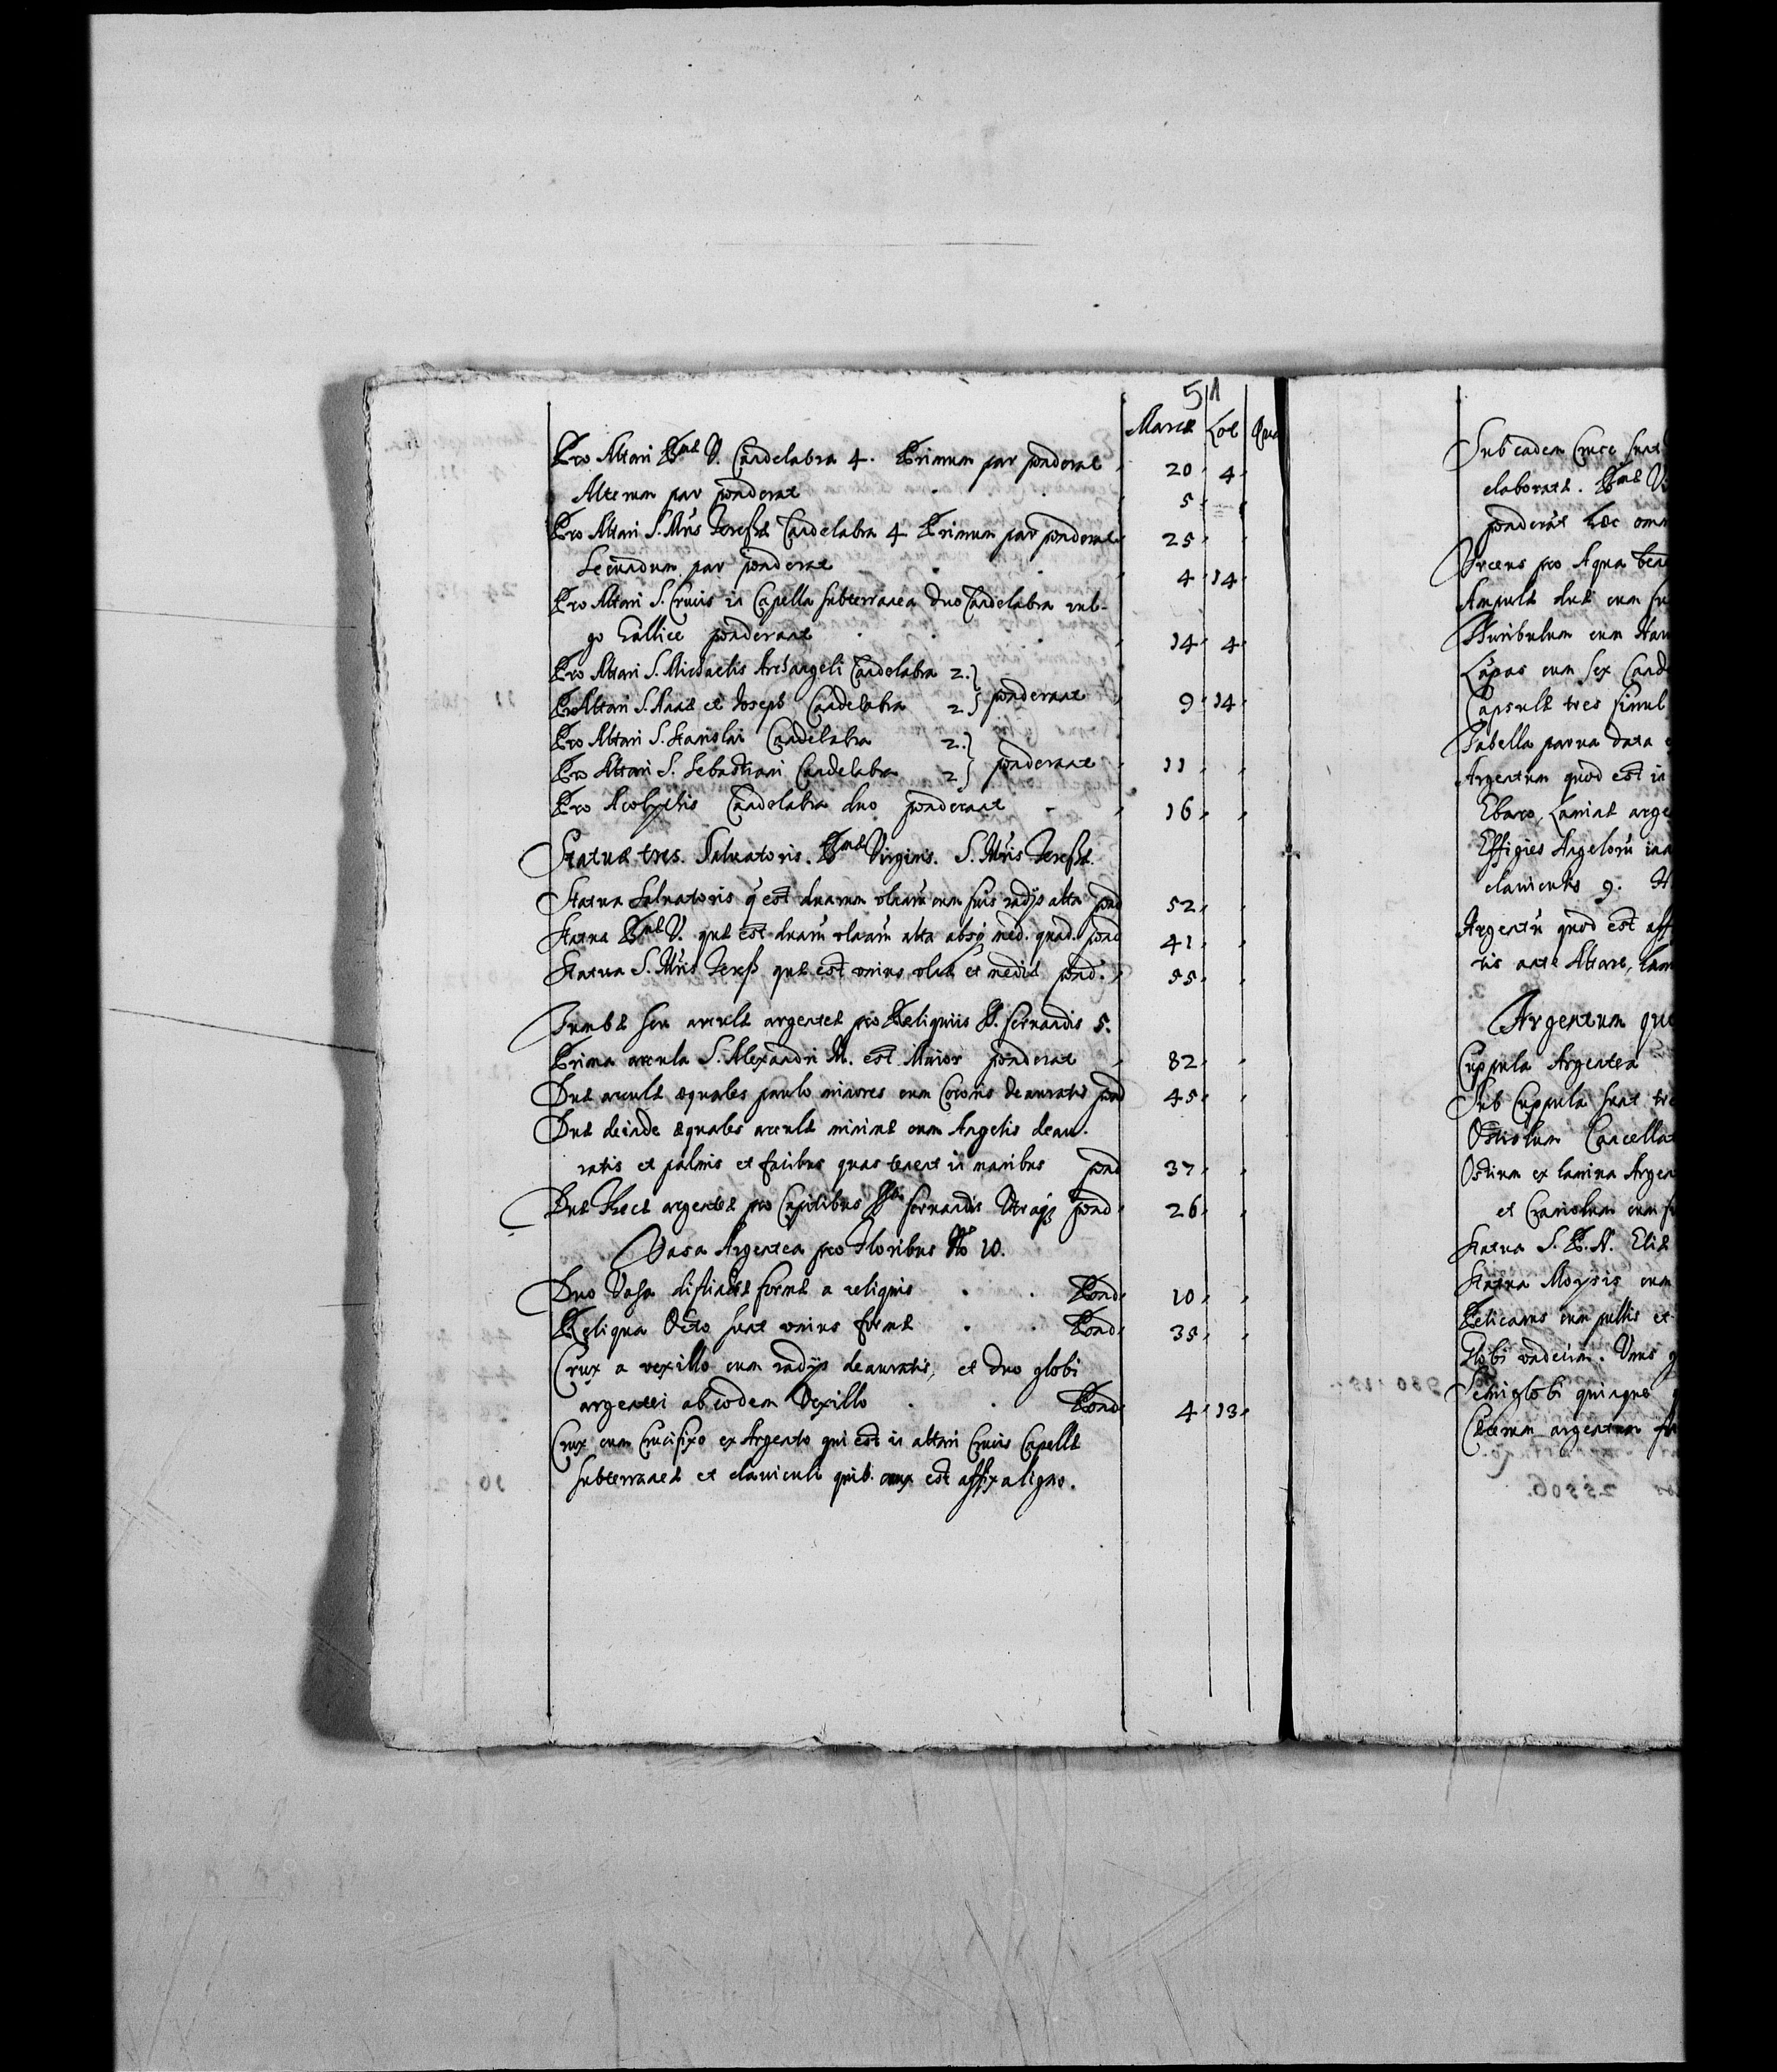 51
Marcæ Lot Qua
Pro Altari Bmæ V. Candelabra 4. Primum par ponderat 20 4
Alterum par ponderat 5
Pro Altari S. Mris Teresæ Candelabra 4 Primum par ponderat 25
Secundum par ponderat 4 14
Pro Altari S. Crucis in Capella subterranea duo Candelabra vul-
go Gallice ponderant 14 4
Pro Altari S. Michaelis Archangeli Candelabra 2.
Pro Altari S. Annæ et Joseph Candelabra 2 ponderant 9 14
Pro Altari S. Stanislai Candelabra 2.
Pro Altari S. Sebastiani Candelabra 2 ponderant 11
Pro Acolythis Candelabra duo ponderant 16
Statuæ tres. Saluatoris. Bmæ Virginis. S. Mris Teresæ.
Statua Saluatoris q est duarum vlnarū cum suis radijs alta pond 52
Statua Bmæ V. quæ est duarū vlnarū alta absq med. quad. pond 41
Statua S. Mris Teres quæ est vnius vlnæ et mediæ pond. 55
Tumbæ seu arculæ argenteæ pro Reliquiis B. seruandis 5.
Prima arcula S. Alexandri M. est Maior ponderat 82
Duæ arculæ æquales paulo minores cum Coronis deauratis pond 45
Duæ deinde æquales arculæ minimæ cum Angelis deau-
ratis et palmis et facibus quas tenent in manibus pond 37
Duæ Thecæ argenteæ pro Capitibus seruandis Utraqz pond 26
Vasa Argentea pro Floribus No 10.
Duo Vasa distinctæ formæ a reliquis Pond 10
Reliqua Octo sunt vnius formæ Pond 35
Crux a vexillo cum radijs deauratis, et duo globi
argentei ab eodem Vexillo Pond 4 13
Crux cum Crucifixo ex Argento qui est in altari Crucis Capellæ
subterraneæ et clauiculi quib. crux est affixa ligno.
Sub eadem Cruce sunt
elaboratæ. Bmæ Vi
ponderāt hæc omn
Urceus pro Aqua bene
Ampulæ duæ cum su
Thuribulum cum Nau
Lāpas cum sex Cand
Capsulæ tres simul
Tabella parua data
Argentum quod est in
Ebano, Laminæ arge
Effigies Angelorū
clauiculis 9.
Argentū quod est aff
tis ante Altare, lam
Argentum quo
Cuppula Argentea
Sub Cuppula sunt tre
Ostiolum Cancellat
Ostium ex lamina Argen
et Craniolum cum
Statua S. P. N. Eliæ
Statua Moysis cum
Pelicanus cum pullis et
Globi vndecim. Vnus
Semiglobi quinque
Cæterum argentum